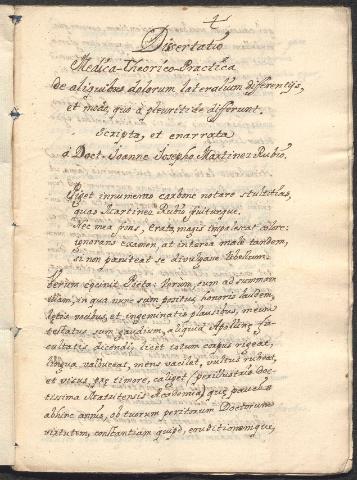 Dissertatio
Medica-Theorico-Practica
de aliquibus dolorum lateralium differentijs,
et modo, quo a pleuritide differunt.
Scripta, et enarrata
à Doct. Joanne Josepho Martinez Rubio.
Piget innumero carbone notare stultitias,
quas Martinez Rubio
Nec mea frons, erat magis impalescat colore:
ignorans examen, at interea male tandem,
si non paniteat se divulgare libellum.
cecinit Poeta: Verum, cum ad summam
etiam, in qua nunc sum positus, honoris laudem,
lætis vocibus, et ingeminatis plausibus, meum
testatus sum gaudium, aliqua Apollineæ fa-
cultatis dicendi, licet totum corpus rigeat,
lingua balbuceat, mens vacilet, vultus rubeat,
et visus præ timore, caliget (perillustris Doc-
tissima Academia) quæ
abhinc annis, ob tuorum peritorum Doctorum
virtutem, constantiam quipè, eruditionemque,